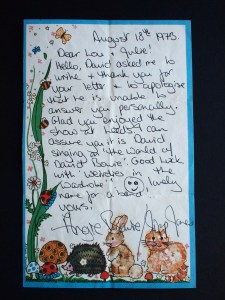 August 18th 1973
Dear Lou & Julie!
Hello, David asked me to
write & thank you for
your letter & to apologise
that he is unable to
answer you personally.
Glad you enjoyed the
show at Leeds, I can
assure you it is David
singing on 'The World of
David Bowie'. Good Luck
with 'Weirdries in the
Wardrobe' lovely
name for a band
yours!
Angie Bowie